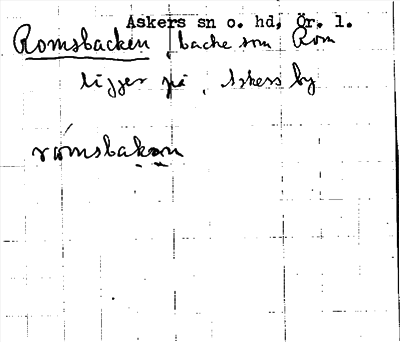 Askers sn o. hd, Ör. l.
Romsbacken, backe som Rom
ligger på, Askers by
rómsbakan